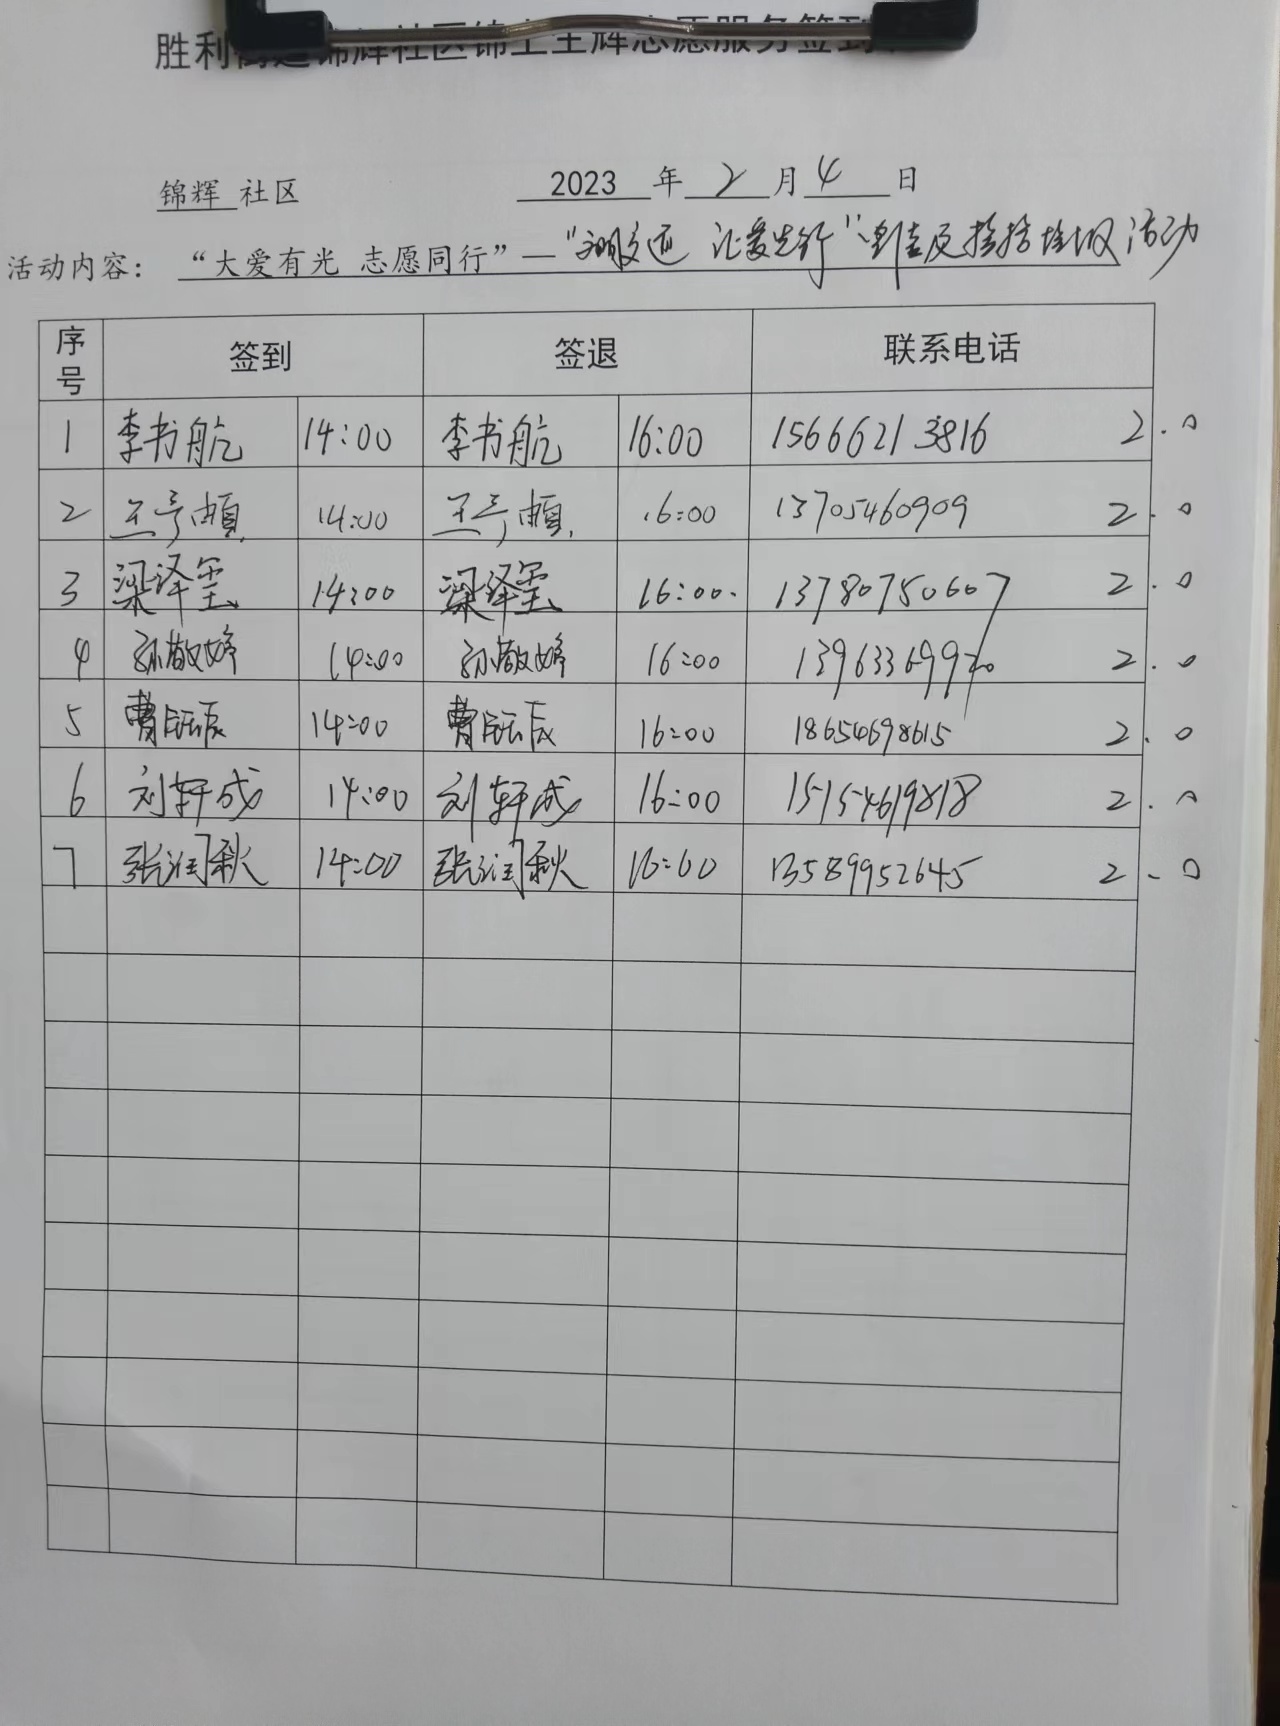 胜利街道锦辉社区锦上生辉志愿服务签到
锦辉 社区 2023 年 2 月 4 日
活动内容: “大爱有光 志愿同行”—“文明交通 让爱先行”、及捡拾垃圾活动
序号 签到 签退 联系电话
1 李书航 14:00 李书航 16:00 15666213816 2.0
2 王 14:00 王 16:00 13705460909 2.0
3 梁泽 14:00 梁泽 16:00. 13780750607 2.0
4 孙敬婷 14:00 孙敬婷 16:00 2.0
5 曹钰辰 14:00 曹钰辰 16:00 18654698615 2.0
6 刘轩成 14:00 刘轩成 16:00 15154619818 2.0
7 张润秋 14:00 张润秋 16:00 13589952645 2.0